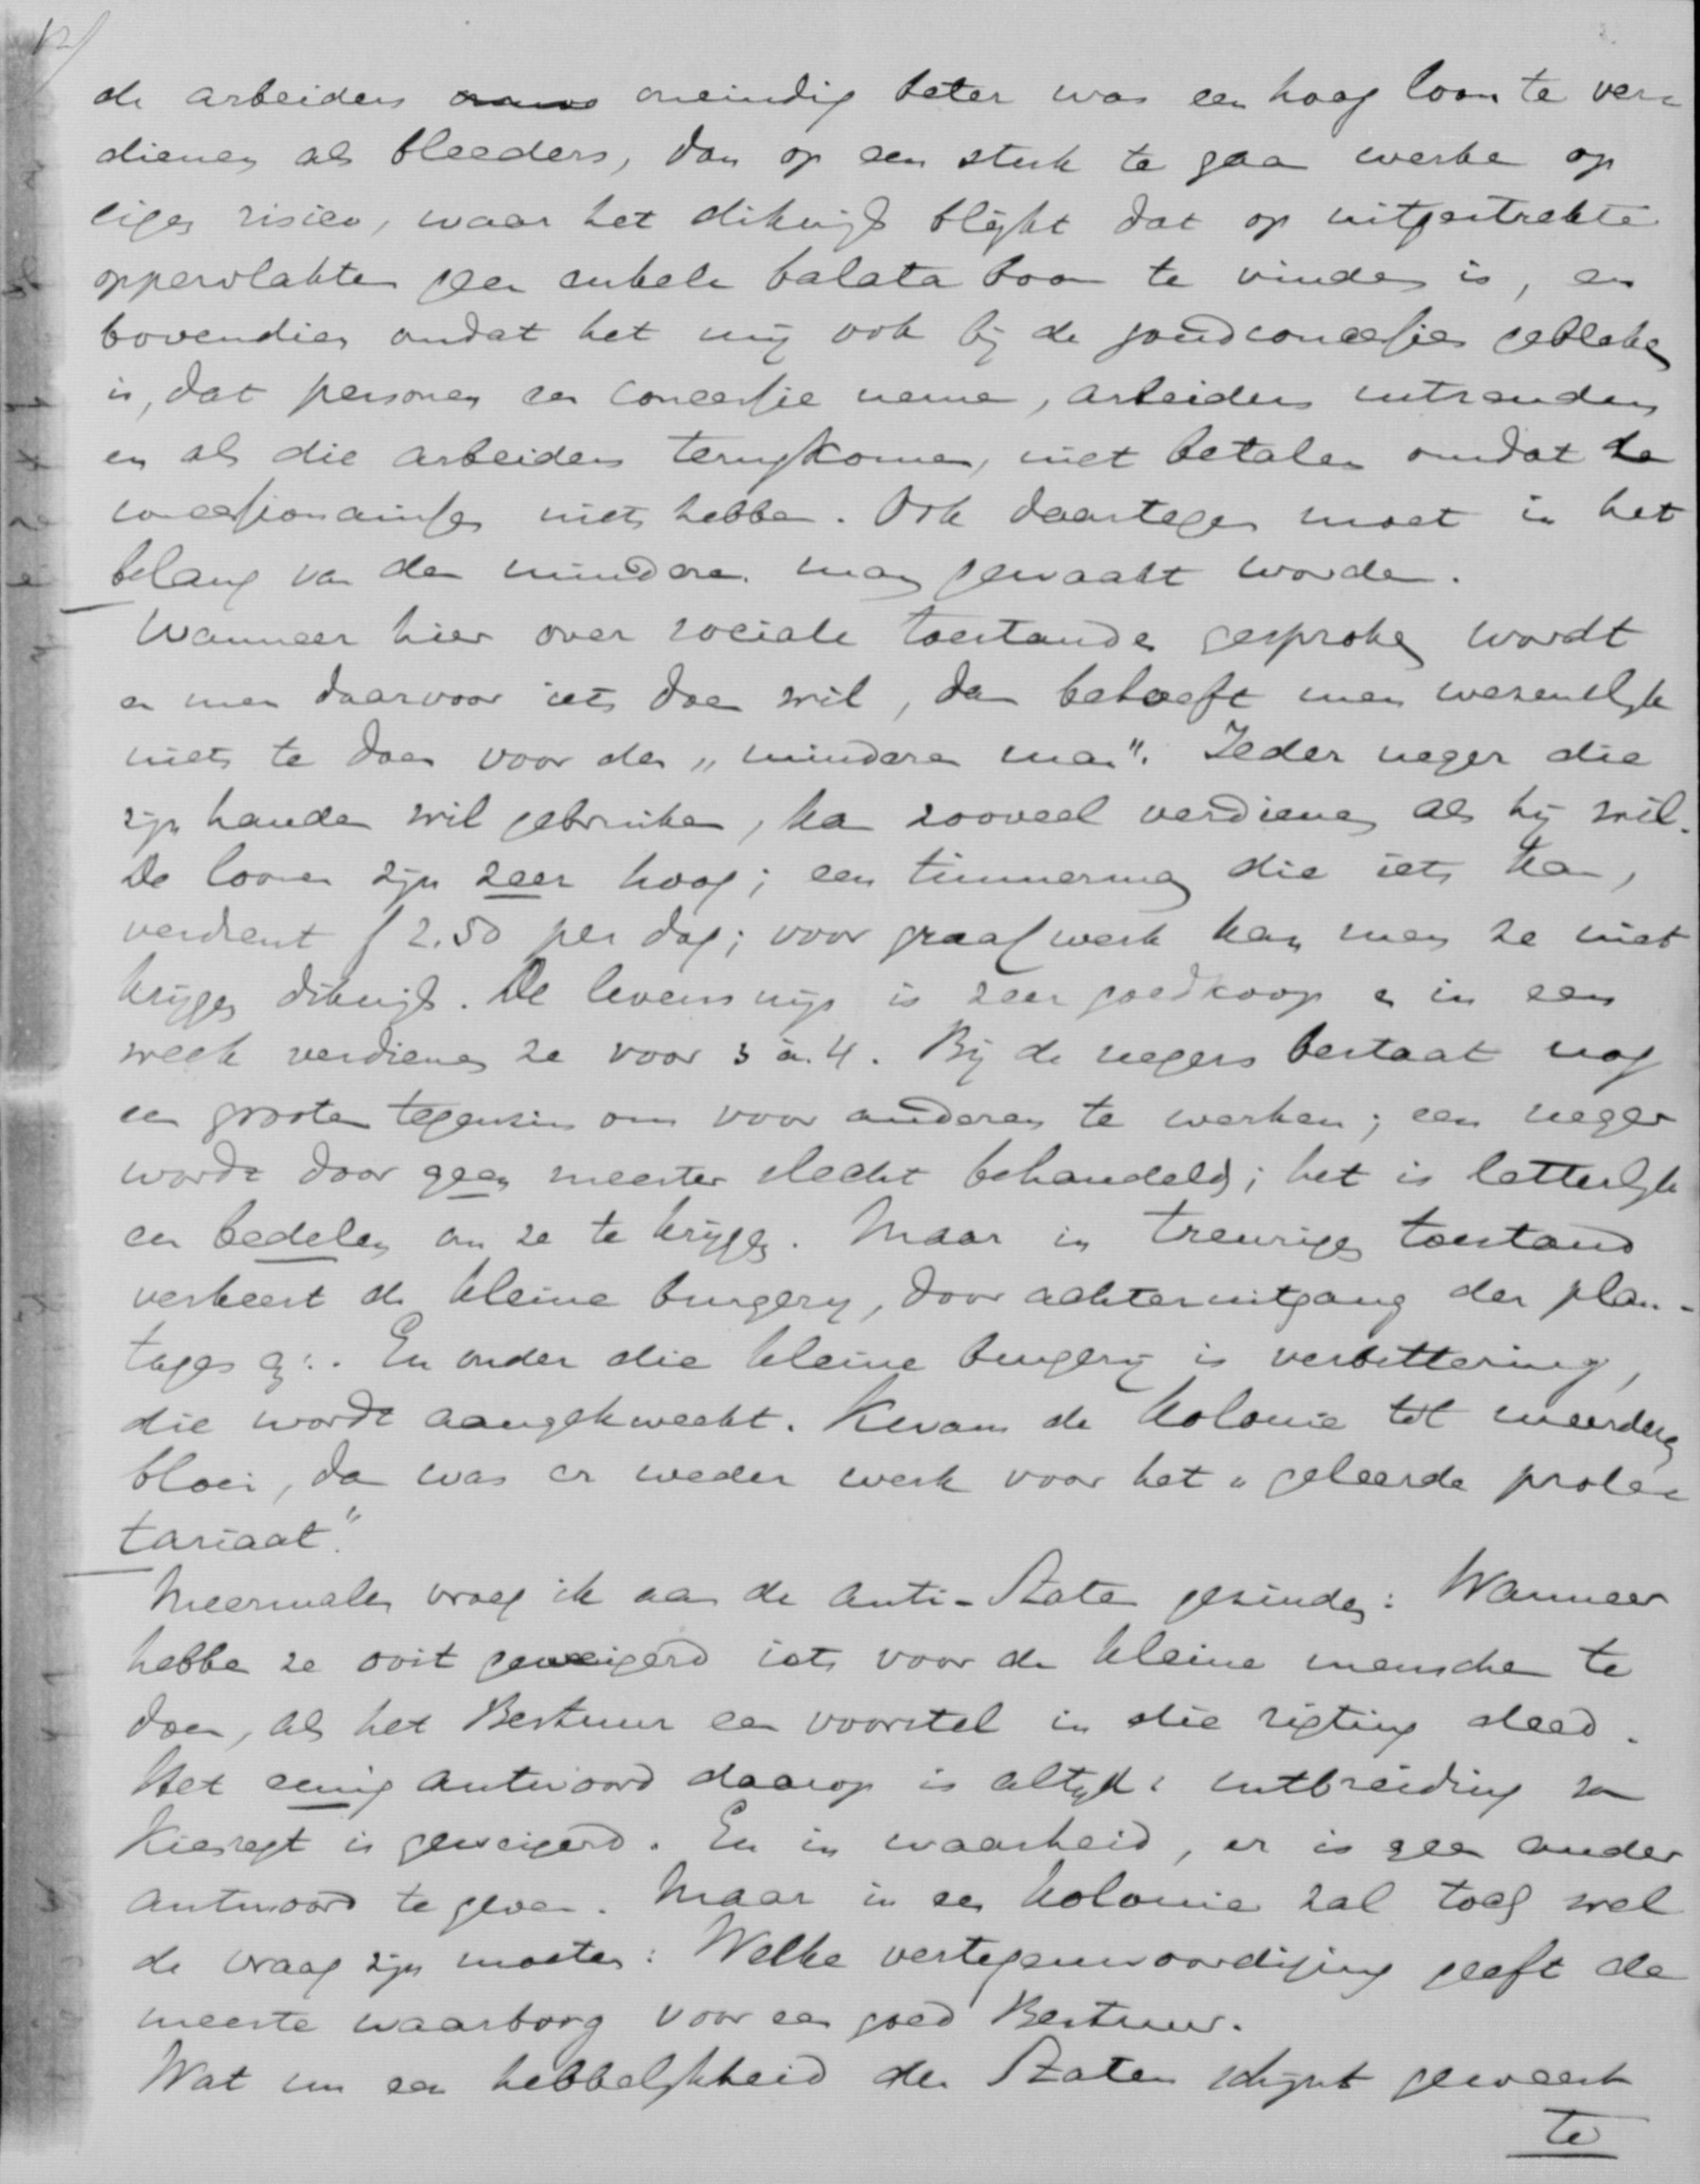 12/
de arbeiders oneindig beter was een hoog loon te ver-
dienen als bleeders, dan op een stuk te gaan werken op
eigen risico, waar het dikwijls blijkt dat op uitgestrekte
oppervlakten geen enkele balata boom te vinden is, en
bovendien omdat het mij ook bij de goudconcessies gebleken
is, dat personen een concessie nemen, arbeiders uitzenden
en als die arbeiders terugkomen, niet betalen omdat de
concessionarissen niets hebben. Ook daartegen moet in het
belang van den minderen man gewaakt worden.
Wanneer hier over sociale toestanden gesproken wordt
en men daarvoor iets doen wil, dan behoeft men wezenlijk
niets te doen voor den „minderen man". Ieder neger die
zijn handen wil gebruiken, kan zooveel verdienen als hij wil.
De loonen zijn zeer hoog; een timmerman die iets kan,
verdient f 2.50 per dag; voor graafwerk kan men ze niet
krijgen dikwijls. De levenswijs is zeer goedkoop en in een
week verdienen ze voor 3 à 4. Bij de negers bestaat nog
een grooten tegenzin om voor anderen te werken; een neger
wordt door geen meester slecht behandeld; het is letterlijk
een bedelen om ze te krijgen. Maar in treurigen toestand
verkeert de kleine burgerij, door achteruitgang der plan-
tages enz. En onder die kleine burgerij is verbittering,
die wordt aangekweekt. Kwam de kolonie tot meerderen
bloei, dan was er weder werk voor het „geleerde prole-
tariaat."
Meermalen vroeg ik aan de anti-Staten gezinden: Wanneer
hebben ze ooit geweigerd iets voor de kleine menschen te
doen, als het Bestuur een voorstel in die rigting deed.
Het eenig antwoord daarop is altijd: uitbreiding van
Kiesregt is geweigerd. En in waarheid, er is geen ander
antwoord te geven. Maar in een kolonie zal toch wel
de vraag zijn moeten: Welke vertegenwoordiging geeft de
meeste waarborg voor een goed Bestuur.
Wat nu een hebbelijkheid der Staten schijnt geweest
te